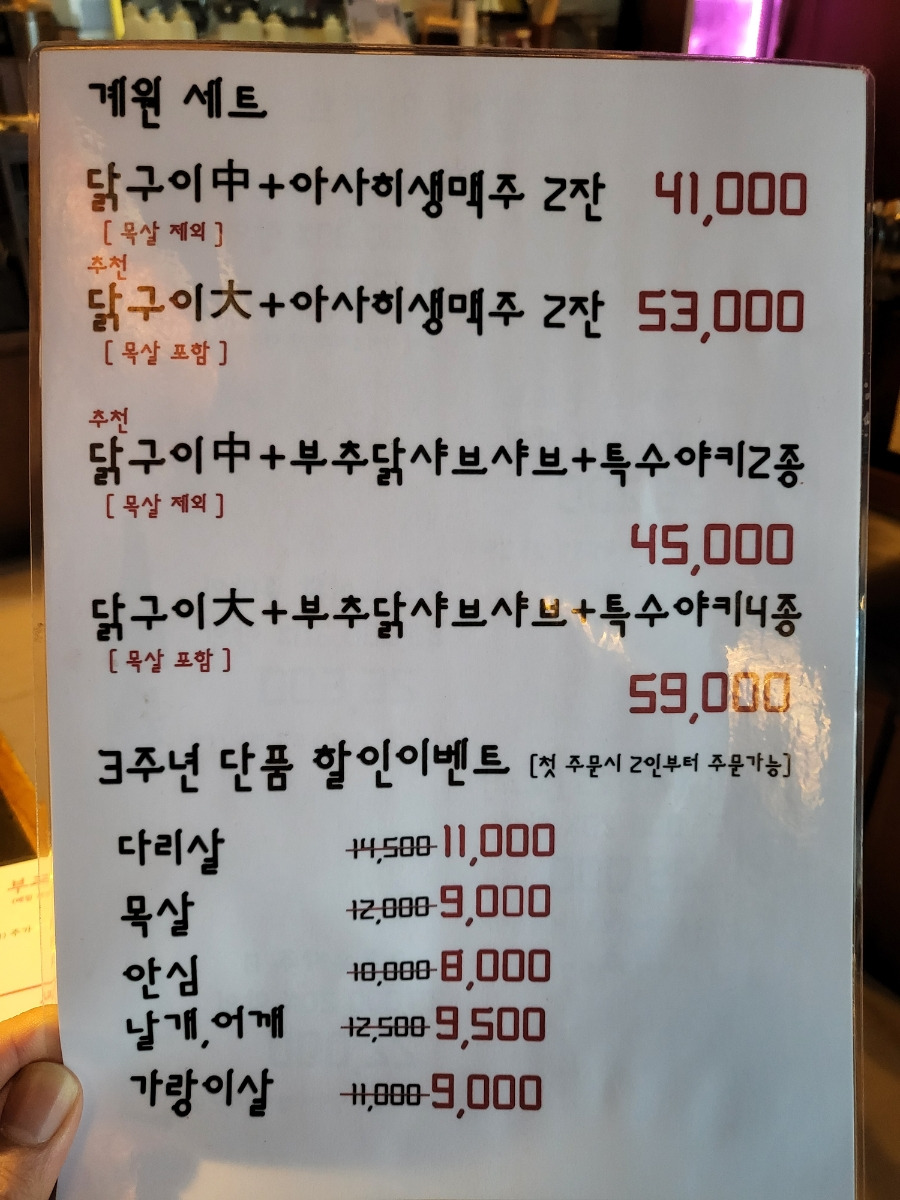 계원 세트
닭구이中+아사히생맥주 2잔 41,000
[ 목살 제외 ]
추천
닭구이大+아사히생맥주 2잔 53,000
[ 목살 포함 ]
추천
닭구이中+부추닭샤브샤브+특수야키2종
[ 목살 제외 ]
45,000
닭구이大+부추닭샤브샤브+특수야키4종
[ 목살 포함 ]
59,000
3주년 단품 할인이벤트 [첫 주문시 2인부터 주문가능]
다리살 14,500 11,000
목살 12,000 9,000
안심 10,000 8,000
날개,어깨 12,500 9,500
가랑이살 11,000 9,000